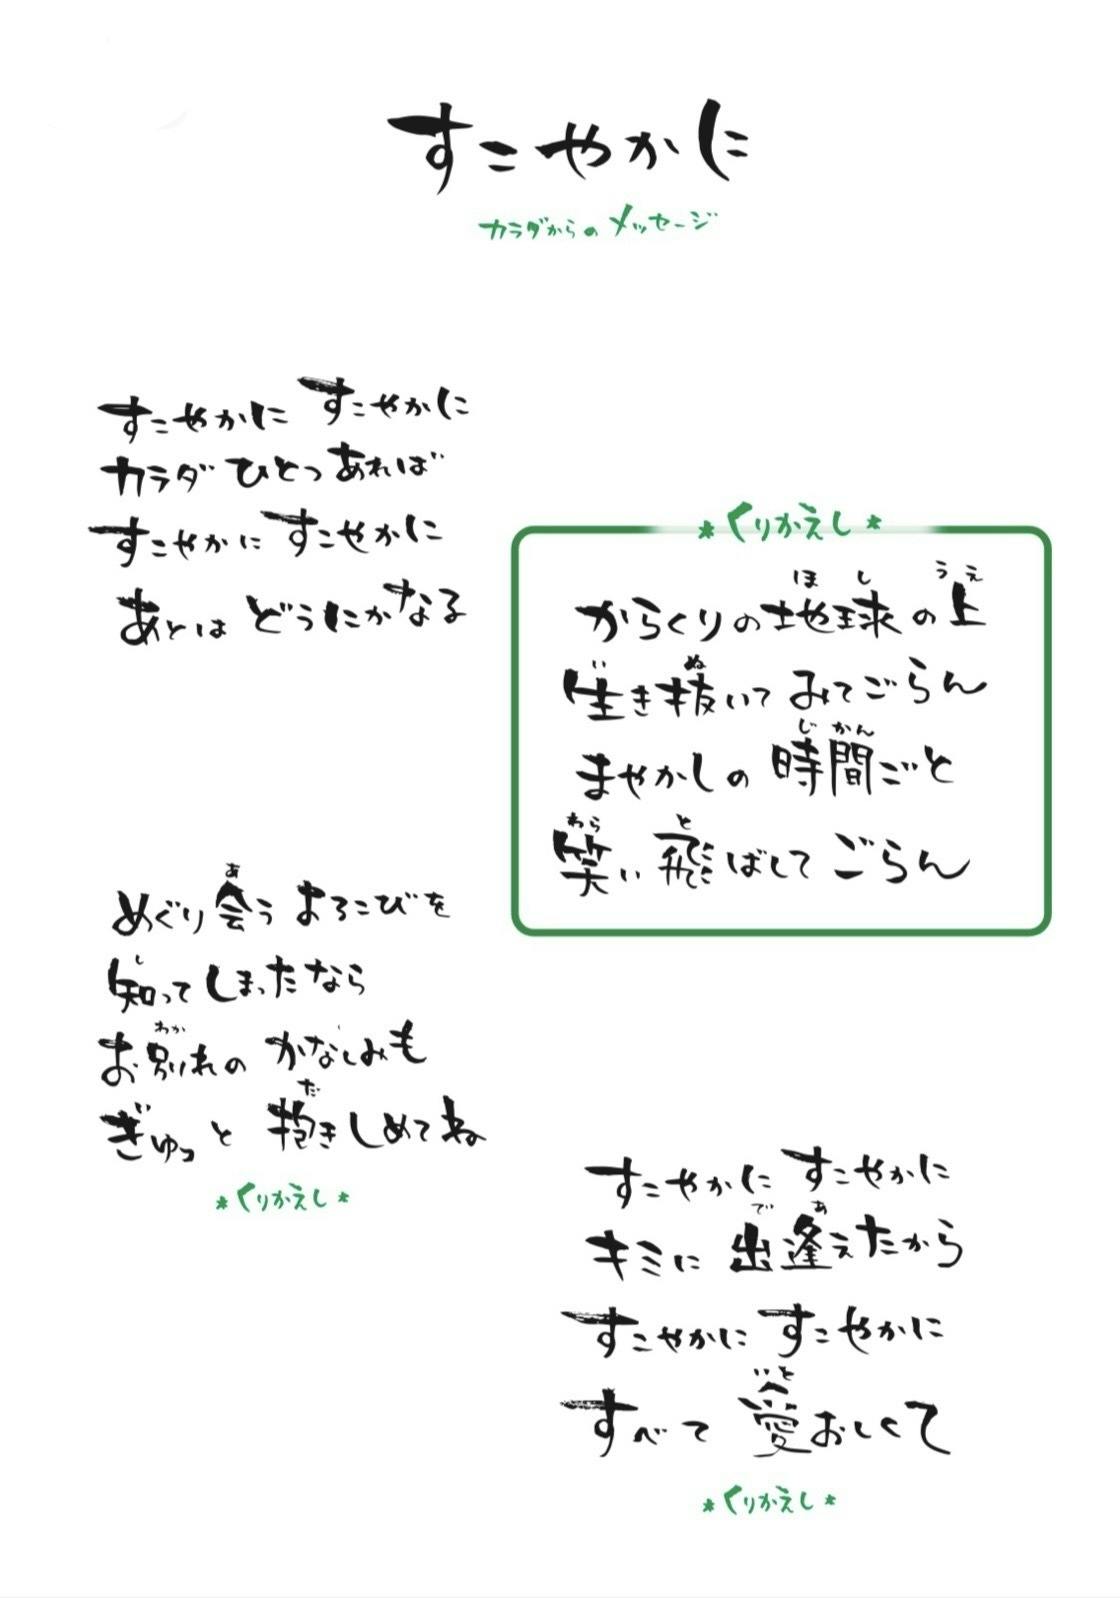 すこやかに
カラダからのメッセージ
すこやかに すこやかに
カラダ ひとつ あれば
すこやかに すこやかに
あとは どうにかなる
*くりかえし*
ほし うえ
からくりの地球の上
い ぬ
生き抜いて みてごらん
じかん
まやかしの 時間ごと
わら と
笑い 飛ばして ごらん
あ
めぐり会う よろこびを
し
知って しまったなら
わか
お別れの かなしみも
だ
ぎゅっと 抱きしめてね
*くりかえし*
すこやかに すこやかに
で あ
キミに 出逢えたから
すこやかに すこやかに
いと
すべて 愛おしくて
*くりかえし*